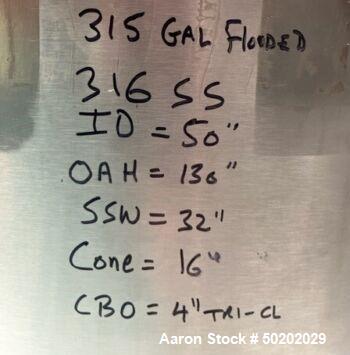 315 GAL FLOODED
316 SS
ID = 50"
OAH = 130"
SSW = 32"
Cone = 16"
CBO = 4" TRI-CL
Aaron Stock # 50202029